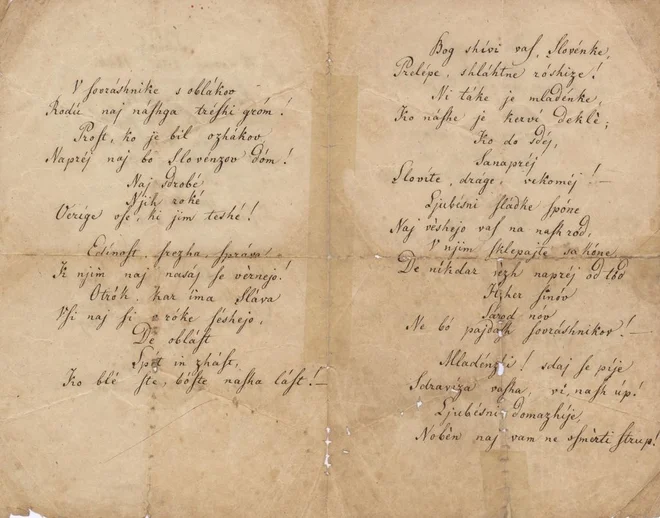 V sovráshnike s oblákov
Rodú naj náshga tréshi gróm!
Prost, ko je bil ozhákov,
Napréj naj bo Slovénzov dóm!
Naj sdrobé
Njih roké
Verige vse, ki jim teshé!
Edinost, srezha, správa!
K njim naj nasáj se vèrnejo!
Otrók, kar ima Sláva
Vsi naj si v róke séshejo,
De oblást
Spet in zhást,
Ko blé ste, bóste nasha lást! —
Bog shivi vas, Slovénke,
Prelépe, shláhtne róshize!
Ni táke je mladénke,
Ko náshe je kervi deklè;
Ko do sdéj,
Sanapréj
Slovite, drage, vekoméj! —
Ljubésni sládke spóne
Naj véshejo vas na nash ròd,
V njim sklepajte sakóne,
De nikdar vèzh napréj od tód
Hzher sinóv
Saród nóv
Ne bó pajdásh sovráshnikov! —
Mladénzhi! sdaj se pije
Sdraviza vasha, vi, nash úp!
Ljubésni domazhíje
Nobèn naj vam ne vsmèrti strup!